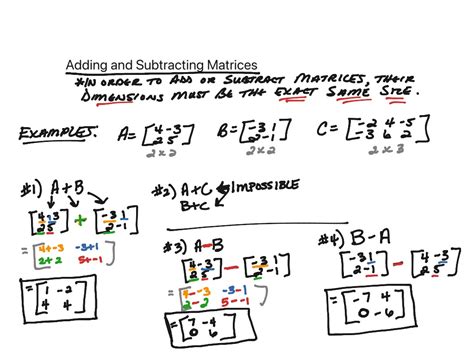 Adding and Subtracting Matrices
*IN ORDER TO ADD OR SUBTRACT MATRICES, THEIR
DIMENSIONS MUST BE THE EXACT SAME SIZE.
EXAMPLES. A= [4 -3 B= [-3 1 C= [-2 4 -5
2 5] 2 -1] -3 6 2]
2x2 2x2 2x3
#1) A+B
[4 -3 + [-3 1
2 5] 2 -1]
= [4+-3 -3+1
2+2 5+-1]
= [1 -2
4 4]
#2) A+C IMPOSSIBLE
B+C
#3) A-B
[4 -3 - [-3 1
2 5] 2 -1]
= [4--3 -3-1
2-2 5--1]
= [7 -4
0 6]
#4) B-A
[-3 1 - [4 -3
2 -1] 2 5]
= [-7 4
0 -6]